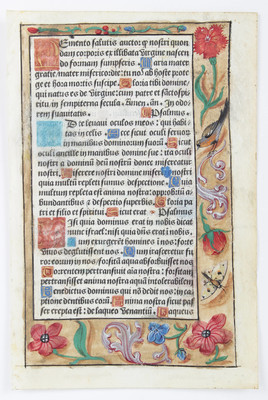 Memento salutis auctor q̃ nostri quon
dam corporis ex illibata virgine nascen
do formam sumpseris. Maria mater
gratie: mater misericordie: tu nos ab hoste prote
ge et hora mortis suscipe. Gloria tibi domine
qui natus es de virgine: cum patre et sancto spi
ritu in sempiterna secula. Amen. An. In odo
rem suavitatis. Psalmus
Ad te levavi oculos meos: qui habi
tas in celis. Ecce sicut oculi servor̃
in manibus dominor̃ suor̃. Et sicut
oculi ancille in manibus domine sue: ita oculi
nostri ad dominũ deũ nostrũ donec misereatur
nostri. Miserere nostri domine miserere nostri:
quia multũ repleti sumus despectione. Quia
multum repleta est anima nostra: opprobriũ a
bundantibus & despectio superbis. Gloria pa
tri et filio et spiritui. Sicut erat. Psalmus
Nisi quia dominus erat in nobis dicat
nunc israel: nisi quia dñs erat in nobis.
Cum exurgerẽt homines in nos: forte
vivos deglutissent nos. Cum irasceretur fu
ror eorum in nos: forsitã aqua absorbuisset nos
Torrentem pertransivit aĩa nostra: forsitan
pertransisset anima nostra aquã intolerabilem
Benedictus dominus qui nõ dedit nos: in ca
ptionẽ dentibus eorũ. Anima nostra sicut pas
ser erepta est: de laqueo venantiũ. Laqueus